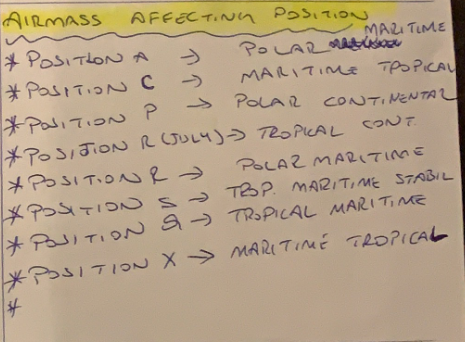 AIRMASS AFFECTING POSITION
* POSITION A → POLAR MARITIME
* POSITION C → MARITIME TROPICAL
* POSITION P → POLAR CONTINENTAL
* POSITION R (JULY) → TROPICAL CONT.
* POSITION R → POLAR MARITIME
* POSITION S → TROP. MARITIME STABIL
* POSITION Q → TROPICAL MARITIME
* POSITION X → MARITIME TROPICAL
*